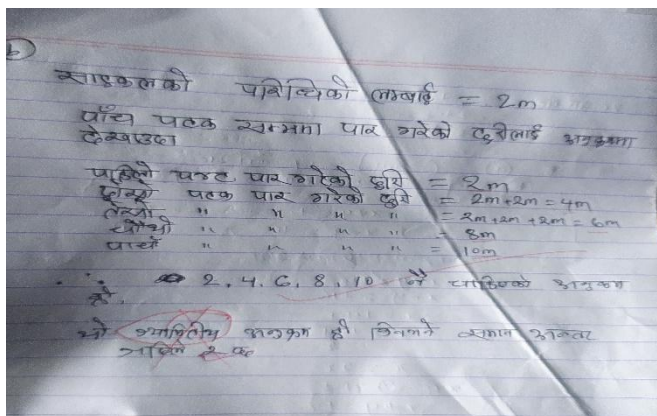 b
साइकलको परिधिको लम्बाई = 2m
पाँच पटक सम्ममा पार गरेको दुरीलाई अनुक्रममा
देखाउदा
पहिलो पटक पार गरेको दुरी = 2m
दोस्रो पटक पार गरेको दुरी = 2m+2m = 4m
तेस्रो " " " " = 2m+2m+2m = 6m
चौथो " " " " = 8m
पाचौं " " " " = 10m
∴ 2, 4, 6, 8, 10 नै चाहिएको अनुक्रम
हो.
यो ज्यामितीय अनुक्रम हो किनभने समान अन्तर